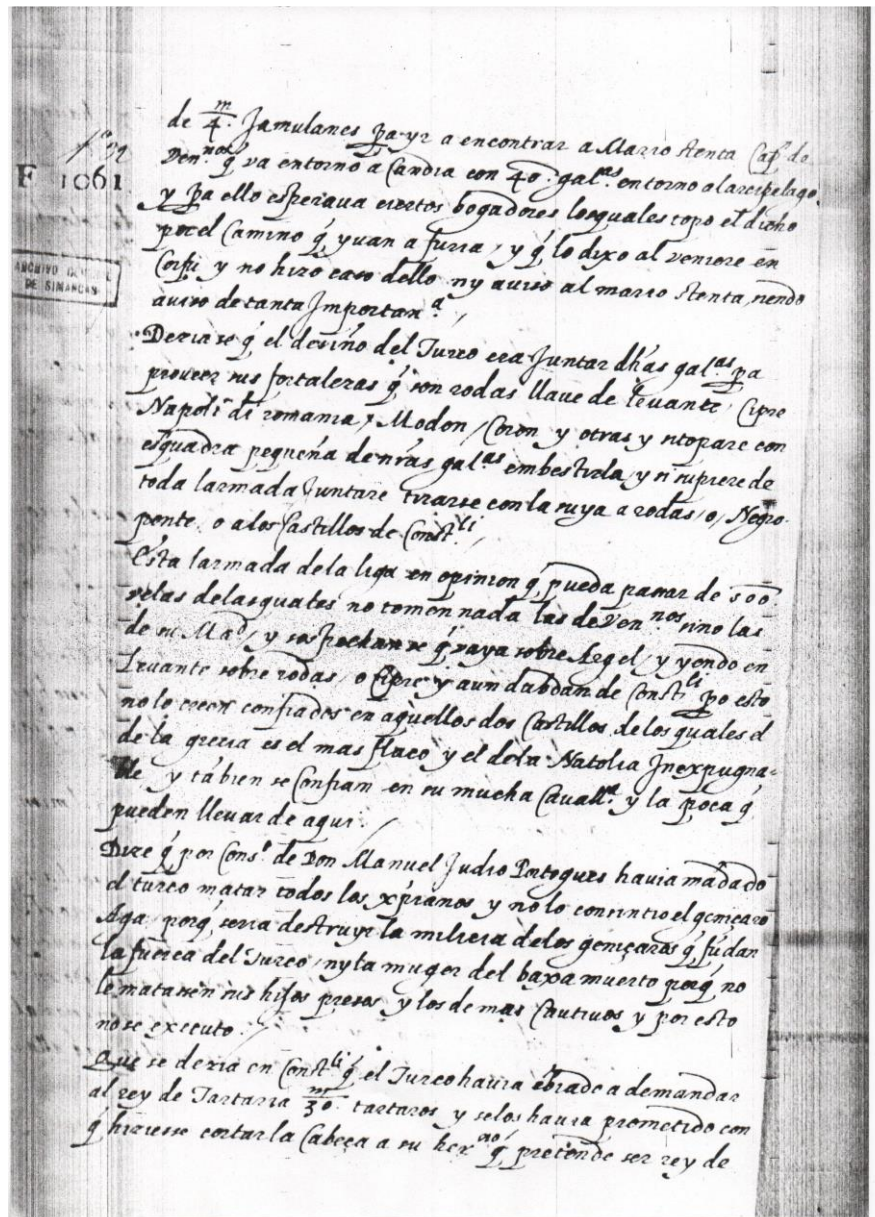 de m/4. Jamulanes pa yr a encontrar a Mario Stenta Capn de
Ven.nos q̃ va entorno a Candia con 40. gal.as entorno al arcipelago,
y pa ello esperava ciertos bogadores los quales topo el dicho
por el Camino q̃ yuan a furia, y q̃ lo dixo al veniere en
Corfu y no hizo caso dello ny aviso al mario Stenta, siendo
aviso de tanta Importan.a
Dezia se q̃ el desiño del Turco era Juntar dhãs gal.as pa
proveer sus fortalezas q̃ son rodas llave de levante, Cipre
Napoli di romania, Modon, Coron y otras y si topare con
esquadra pequeña de nras gal.as embestirla, y si supiere de
toda larmada Juntare tirarse con la suya a rodas, o, Negro
ponte. o a los Castillos de Const.li
Esta larmada de la liga en opinion q̃ pueda pasar de 500
velas de las quales no temen nada las de Ven.nos sino las
de su Mad. y sospechan se q̃ vaya sobre Argel, y yendo en
levante sobre rodas, o Cipre y aun dubdan de Const.li po esto
no lo creen confiados en aquellos dos Castillos de los quales el
de la grecia es el mas flaco y el de la Natolia Inexpugna-
ble y tãbien se Confian en su mucha Cavall.a y la poca q̃
pueden llevar de aqui.
Dize q̃ por Cons.o de Don Manuel Judio Portogues havia mãdado
el turco matar todos los xpianos y no lo consintio el geniçaro
Aga porq̃ seria destruyr la milicia de los geniçaros q̃ fũdan
la fuerça del Turco, ny la muger del baxa muerto porq̃ no
le matassen sus hijos presos y los demas Cautivos y por esto
no se executo.
Que se dezia en Const.li q̃ el Turco havia ẽbiado a demandar
al rey de Tartaria m/30. tartaros y selos havia prometido con
q̃ hiziesse cortar la Cabeça a su her.no q̃ pretende ser rey de
fo 92
F 1061
ARCHIVO GENERAL
DE SIMANCAS